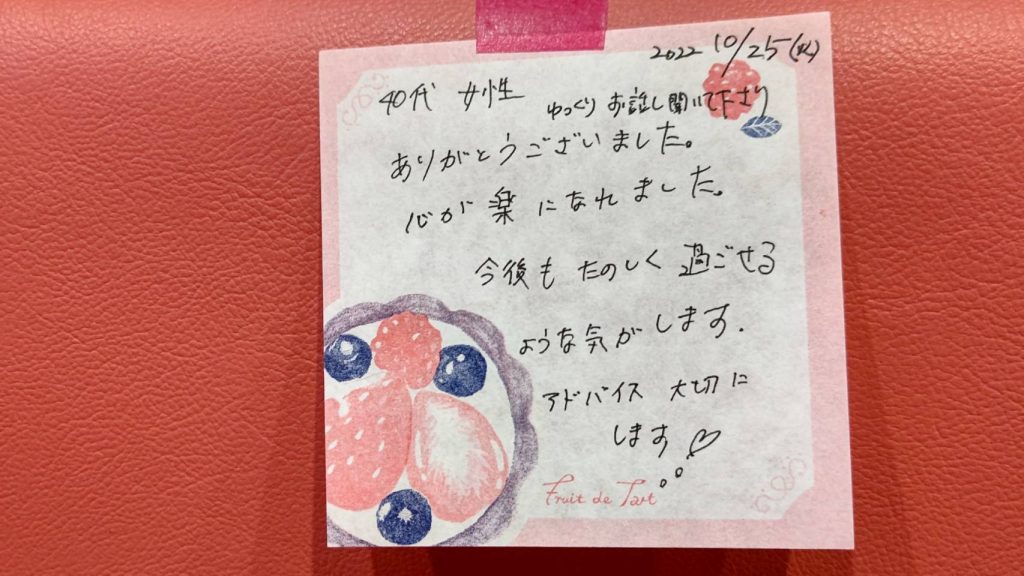 2022 10/25(火)
40代 女性
ゆっくり お話し聞いて下さり
ありがとうございました。
心が楽になれました。
今後も たのしく 過ごせる
ような気がします.
アドバイス 大切に
します♡
Fruit de Tart